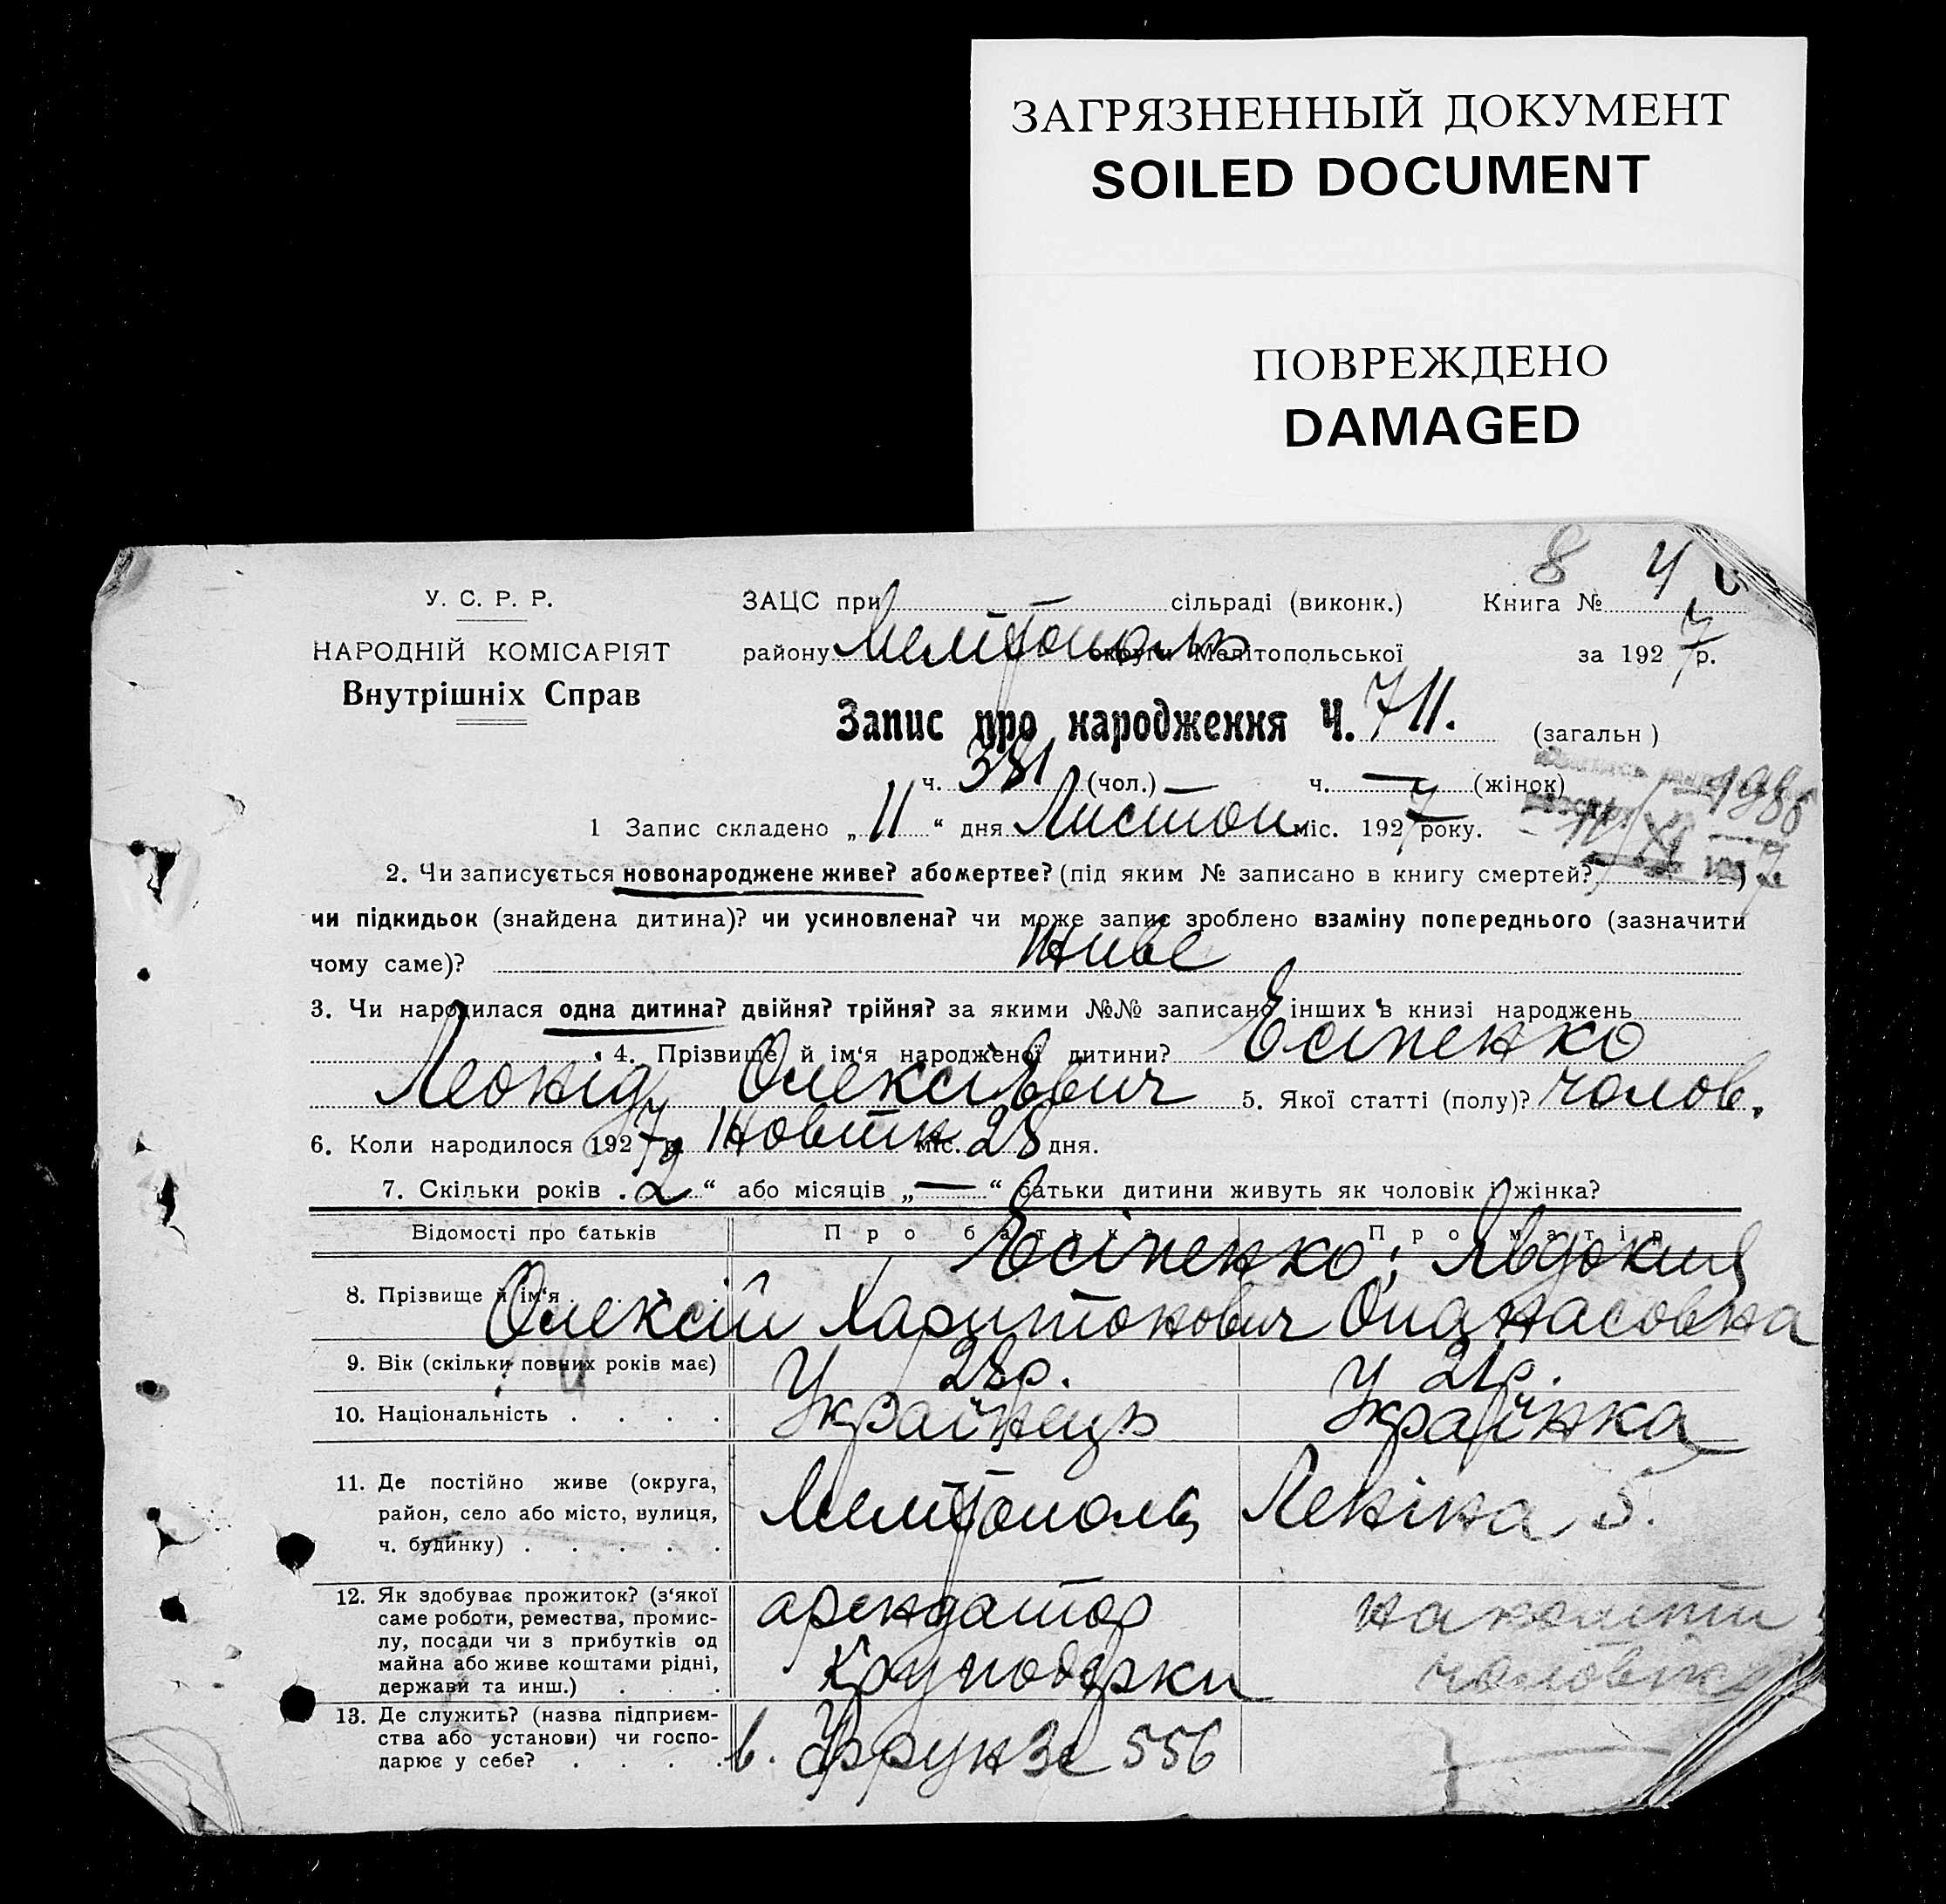 ЗАГРЯЗНЕННЫЙ ДОКУМЕНТ
SOILED DOCUMENT
ПОВРЕЖДЕНО
DAMAGED
8 4
У. С. Р. Р.
НАРОДНІЙ КОМІСАРІЯТ
Внутрішніх Справ
ЗАЦС при — сільраді (виконк.) Книга №
району Мелітополь округи Мелітопольської за 1927 р.
Запис про народження Ч. 711. (загальн)
ч. 381 (чол.) ч. — (жінок)
1 Запис складено „11“ дня Листоп міс. 1927 року.
2. Чи записується новонароджене живе? або мертве? (під яким № записано в книгу смертей? )
чи підкидьок (знайдена дитина)? чи усиновлена? чи може запис зроблено взаміну попереднього (зазначити
чому саме)? живе
3. Чи народилася одна дитина? двійня? трійня? за якими №№ записано інших в книзі народжень
4. Прізвище й ім‘я народженої дитини? Єсіпенко
Леонід Олексієвич 5. Якої статті (полу)? чолов.
6. Коли народилося 1927 р. Жовтн міс. 28 дня.
7. Скільки років 2 “ або місяців „—“ батьки дитини живуть як чоловік і жінка?
Відомості про батьків Про батька Про матір
8. Прізвище й ім‘я Єсіпенко; Явдокия
Олексій Харитонович Опанасовна
9. Вік (скільки повних років має) 28р. 21р.
10. Національність . . . . Українець Українка
11. Де постійно живе (округа,
район, село або місто, вулиця,
ч. будинку) . . . . . Мелітополь Леніна 5.
12. Як здобуває прожиток? (з‘якої
саме роботи, ремества, промис-
лу, посади чи з прибутків од
майна або живе коштами рідні,
держави та инш.) . . . арендатор
Круподерки
на кошти
чоловіка
13. Де служить? (назва підприєм-
ства або установи) чи госпо-
дарює у себе? . . . . в. Фрунзе 556